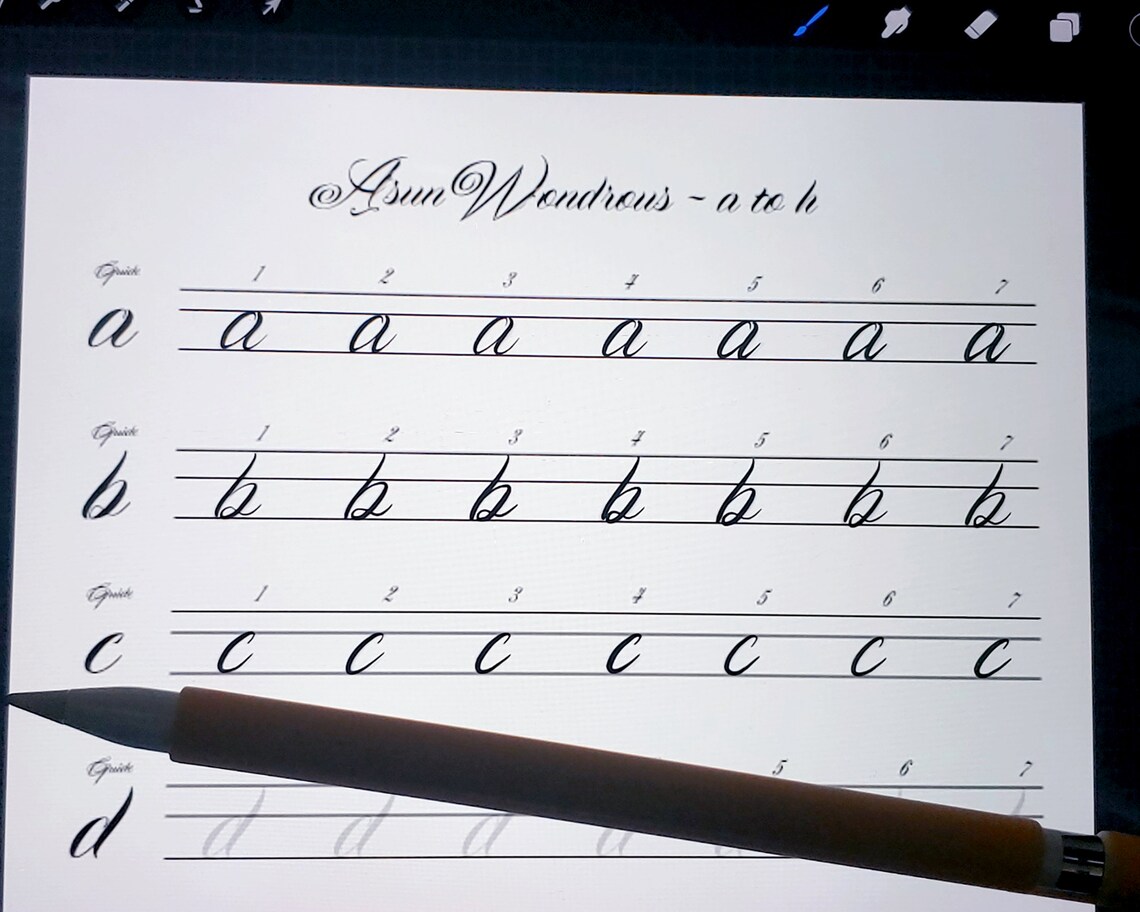 Asun Wondrous ~ a to h
Guide 1 2 3 4 5 6 7
a a a a a a a a
Guide 1 2 3 4 5 6 7
b b b b b b b b
Guide 1 2 3 4 5 6 7
c c c c c c c c
Guide 5 6 7
d d d d d d